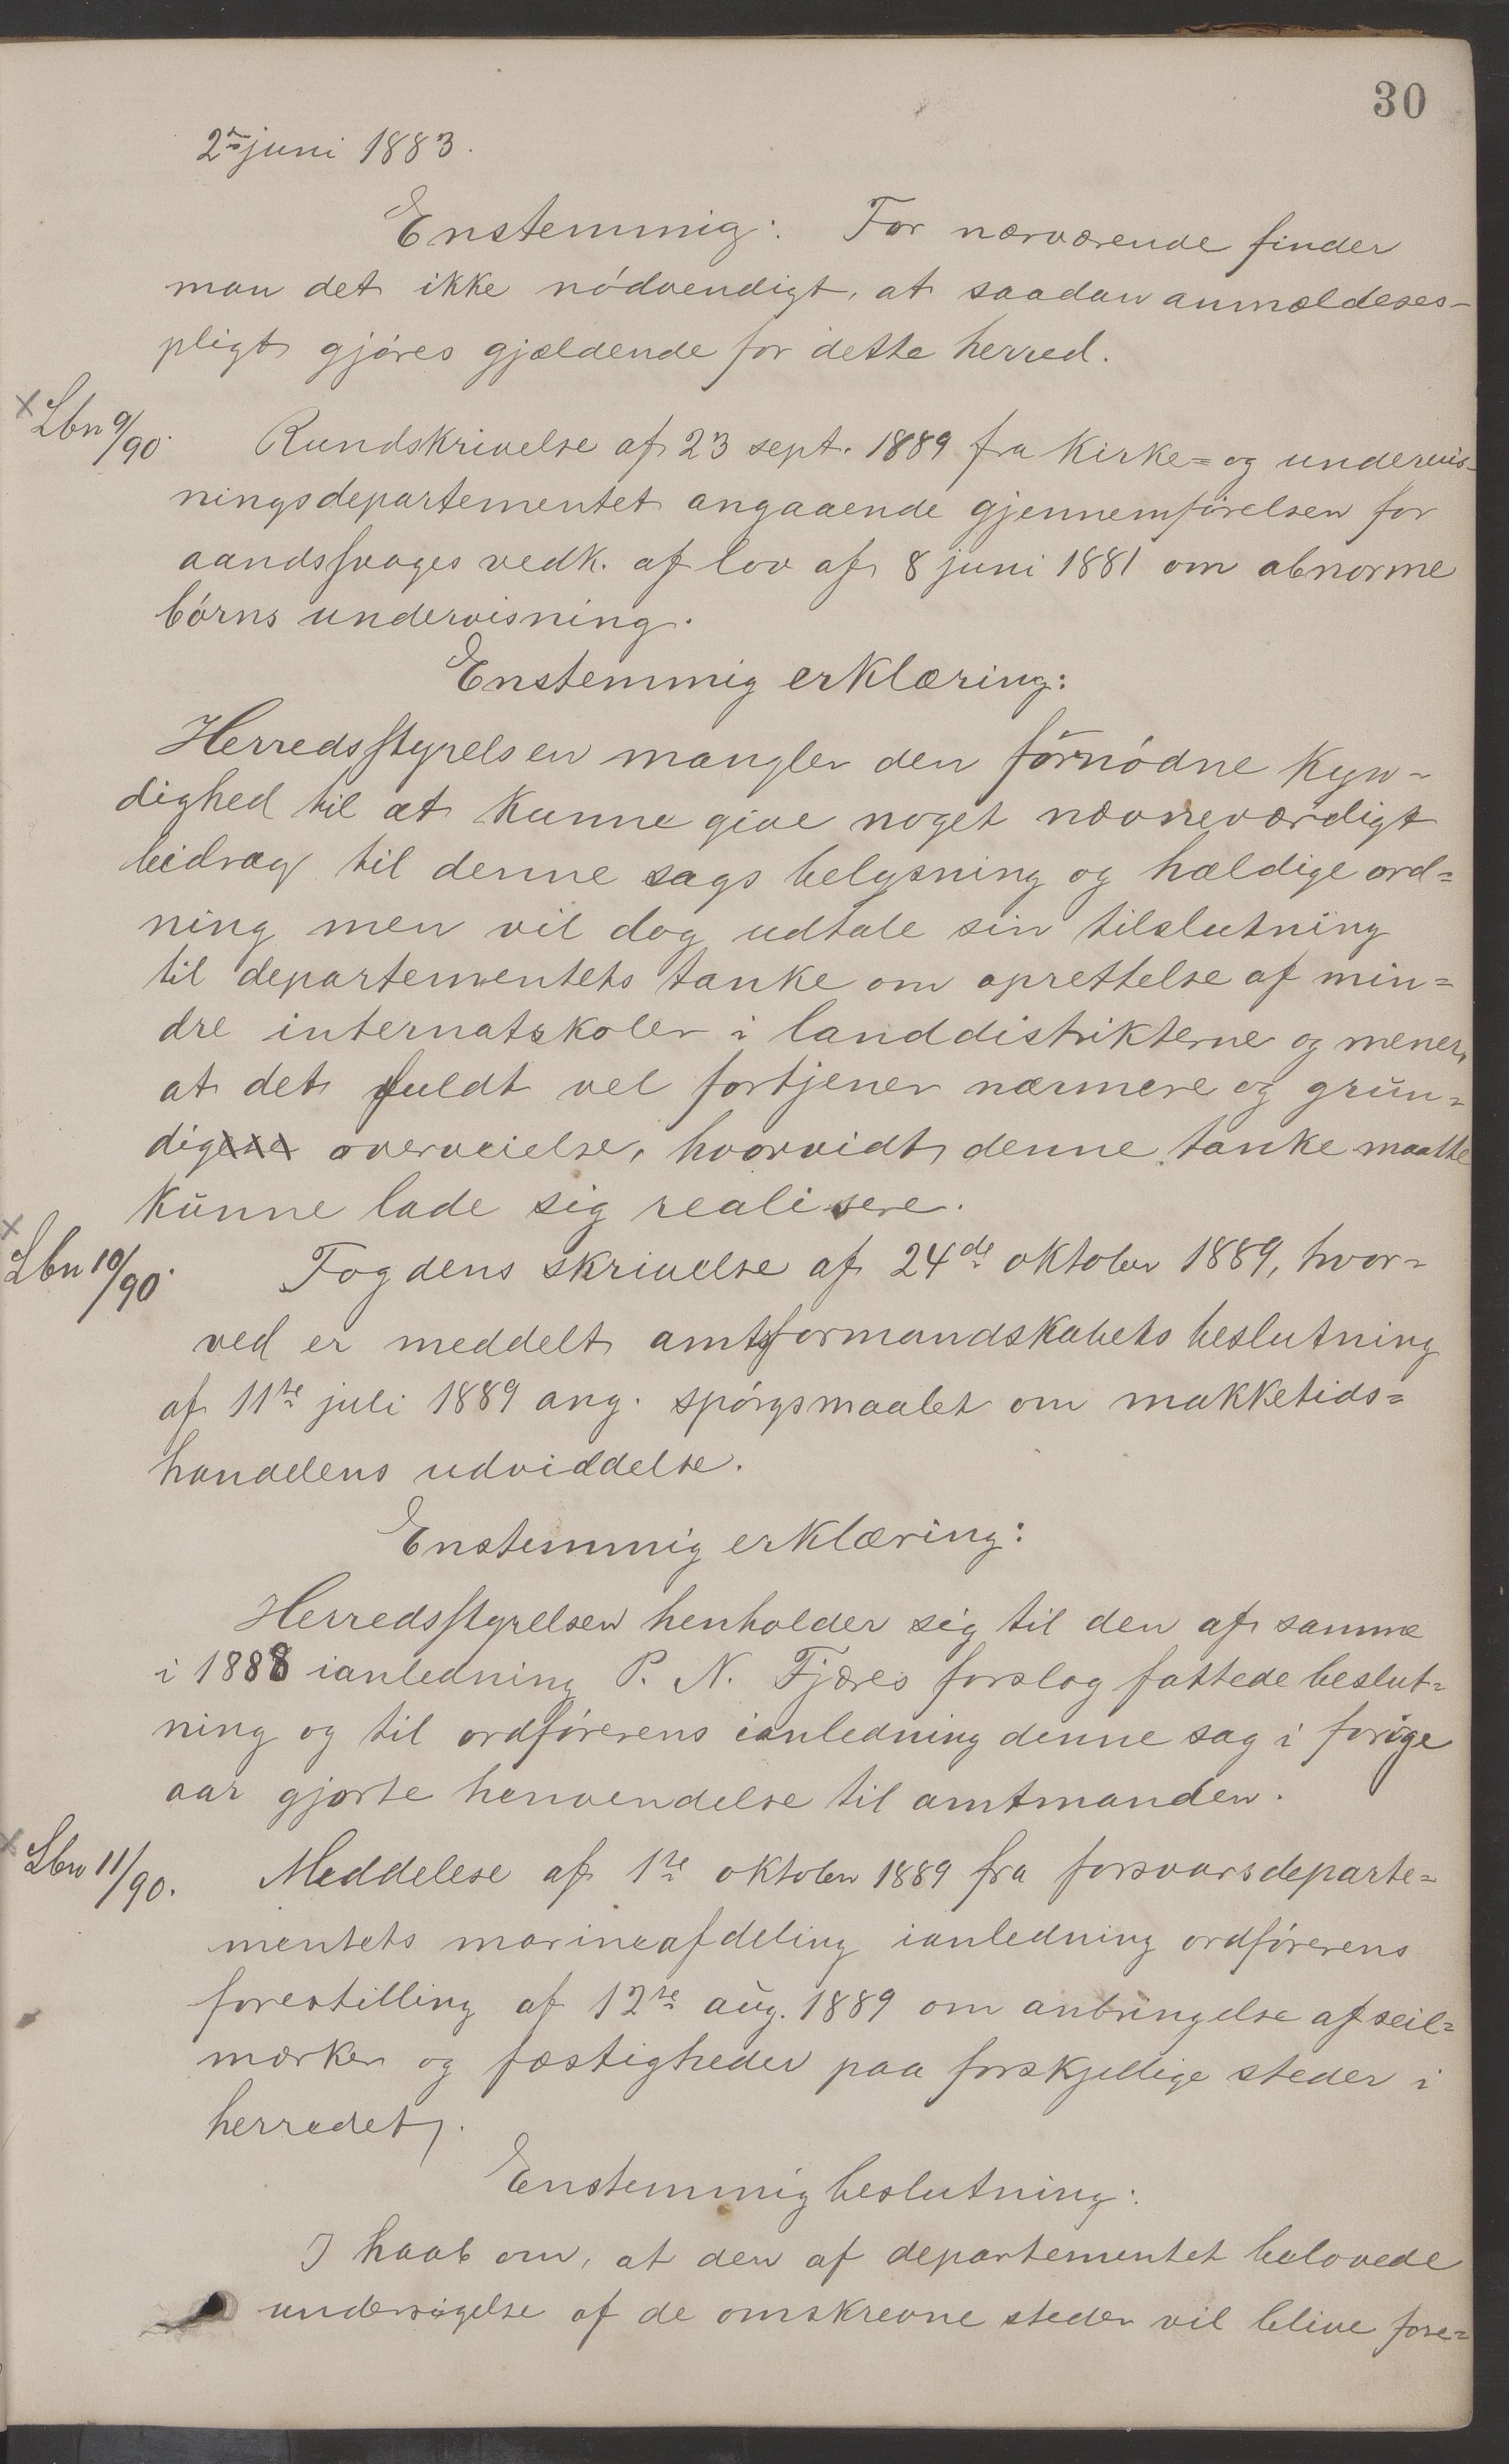 30
2den juni 1883.
Enstemmig: For nærværende finder
man det ikke nódvendigt, at saadan anmældeses-
pligt gjóres gjældende for dette herred.
Lbn 9/90. Rundskrivelse af 23 sept. 1889 fra Kirke= og undervis-
ningsdepartementet angaaende gjennemfórelsen for
aandssvages vedk. af lov af 8 juni 1881 om abnorme
bórns undervisning.
Enstemmig erklæring:
Herredsstyrelsen mangler den fórnódne kyn-
dighed til at kunne give noget nævneværdigt
bidrag til denne sags belysning og hældige ord=
ning men vil dog udtale sin tilslutning
til departementets tanke om oprettelse af min=
dre internatskoler i landdistrikterne og mener,
at det fuldt vel fortjener nærmere og grun=
dig overveielse, hvorvidt denne tanke maatte
kunne lade sig realisere.
Lbn 10/90. Fogdens skrivelse af 24de oktober 1889, hvor=
ved er meddelt amtsformandskabets beslutning
af 11te juli 1889 ang. spórgsmaalet om makketids=
handelens udviddelse.
Enstemmig erklæring:
Herredsstyrelsen henholder sig til den af samme
i 1888 ianledning P. N. Fjæres forslag fattede beslut=
ning og til ordfórerens ianledning denne sag i forige
aar gjorte henvendelse til amtmanden.
Lbn 11/90. Meddelese af 1te oktober 1889 fra forsvarsdeparte=
mentets marineafdeling ianledning ordfórerens
forestilling af 12te aug. 1889 om anbringelse af seil=
mærker og fæstigheder paa forskjellige steder i
herredet.
Enstemmig beslutning:
I haab om, at den af departementet belovede
undersógelse af de omskrevne steder vil blive fore=